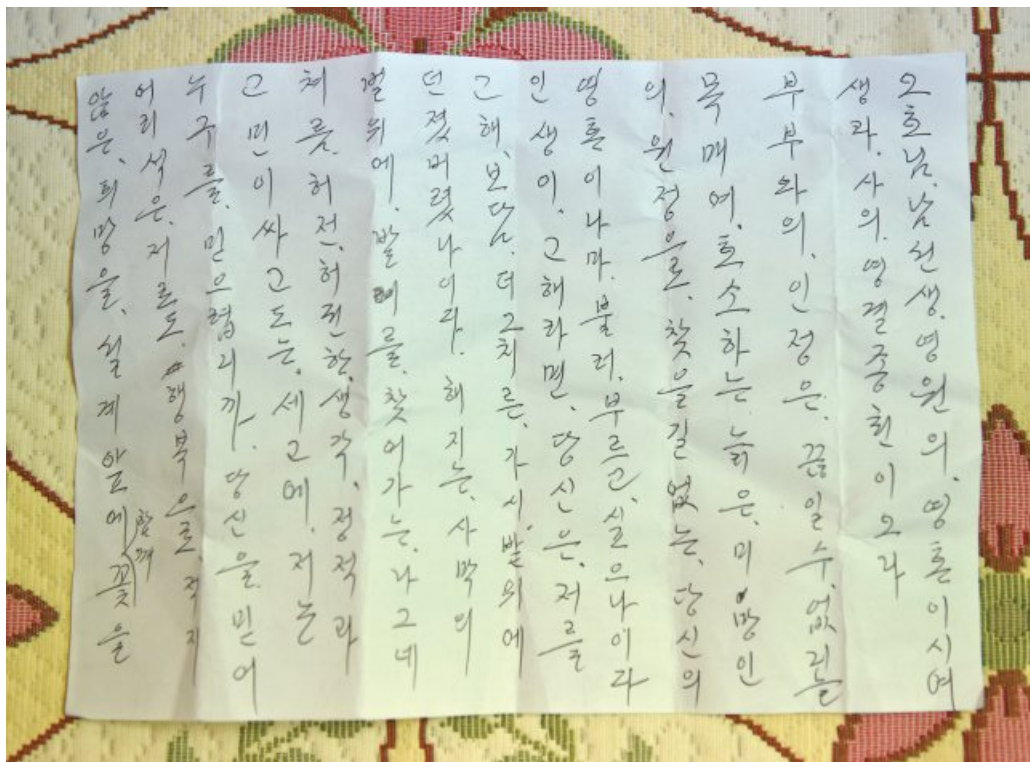 오호님, 남선생, 영원의, 영혼이시여
생과, 사의, 영결종천이오라
부부와의, 인정은, 끊일수, 없긔늘
목매여, 호소하는, 늙은, 미망인
의, 원정으로, 찾을길없는, 당신의
영혼이나마, 불러, 부르고, 싶으나이다
인생이, 그해라면, 당신은, 저를
그해, 보담, 더그치른, 가시, 밭의에
던졌버렸나이다. 해지는, 사막의
길위에, 발비를, 찾어가는, 나그네
처름, 허전, 허전한, 생각, 정적과
고민이싸고도는, 세고에, 저는
누구를, 믿으렵리까, 당신을, 믿어
어리석은, 저로도, 행복으로 적지
않은, 희망을, 설계앞에 함께 꽃을